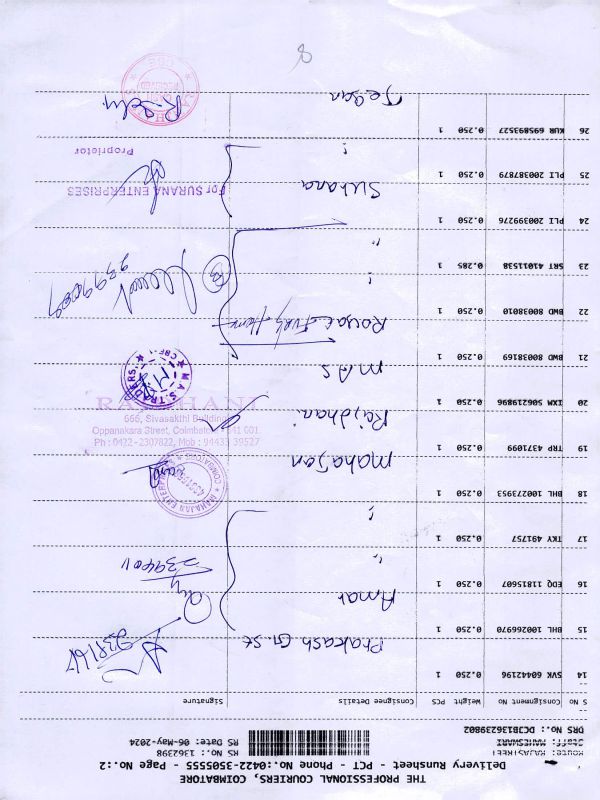 THE PROFESSIONAL COURIERS, COIMBATORE
Delivery Runsheet - PCT - Phone No.:0422-3505555 - Page No.:2
Route: RAJASTREET RS No: 1362398
Staff: MAHESWARI RS Date: 06-May-2024
DRS No.: DCJB136239802
S No Consignment No Weight PCS Consignee Details Signature
14 SVK 60442196 0.250 1 Prakash G.St
15 BHL 100266970 0.250 1 Amar
16 EDQ 11815607 0.250 1 "
17 TKY 491757 0.250 1 "
18 BHL 100273953 0.250 1 Mahajan
19 TRP 4371099 0.250 1 Rajdhani
20 IXM 506219896 0.250 1 MAS
21 BWD 80038169 0.250 1
22 BWD 80038010 0.250 1 "
23 SRT 41011538 0.285 1 "
24 PLI 200399276 0.250 1 Surana
25 PLI 200387879 0.250 1 "
26 KUR 695893527 0.250 1 Jegan
MAHAJAN ENTERPRISES
COIMBATORE
RAJDHANI
666, Sivasakthi Building
Oppanakara Street, Coimbatore - 641 001.
Ph : 0422 - 2307822, Mob : 94433 39527
M.A.S. TRADERS
CBE-1
For SURANA ENTERPRISES
Proprietor
8